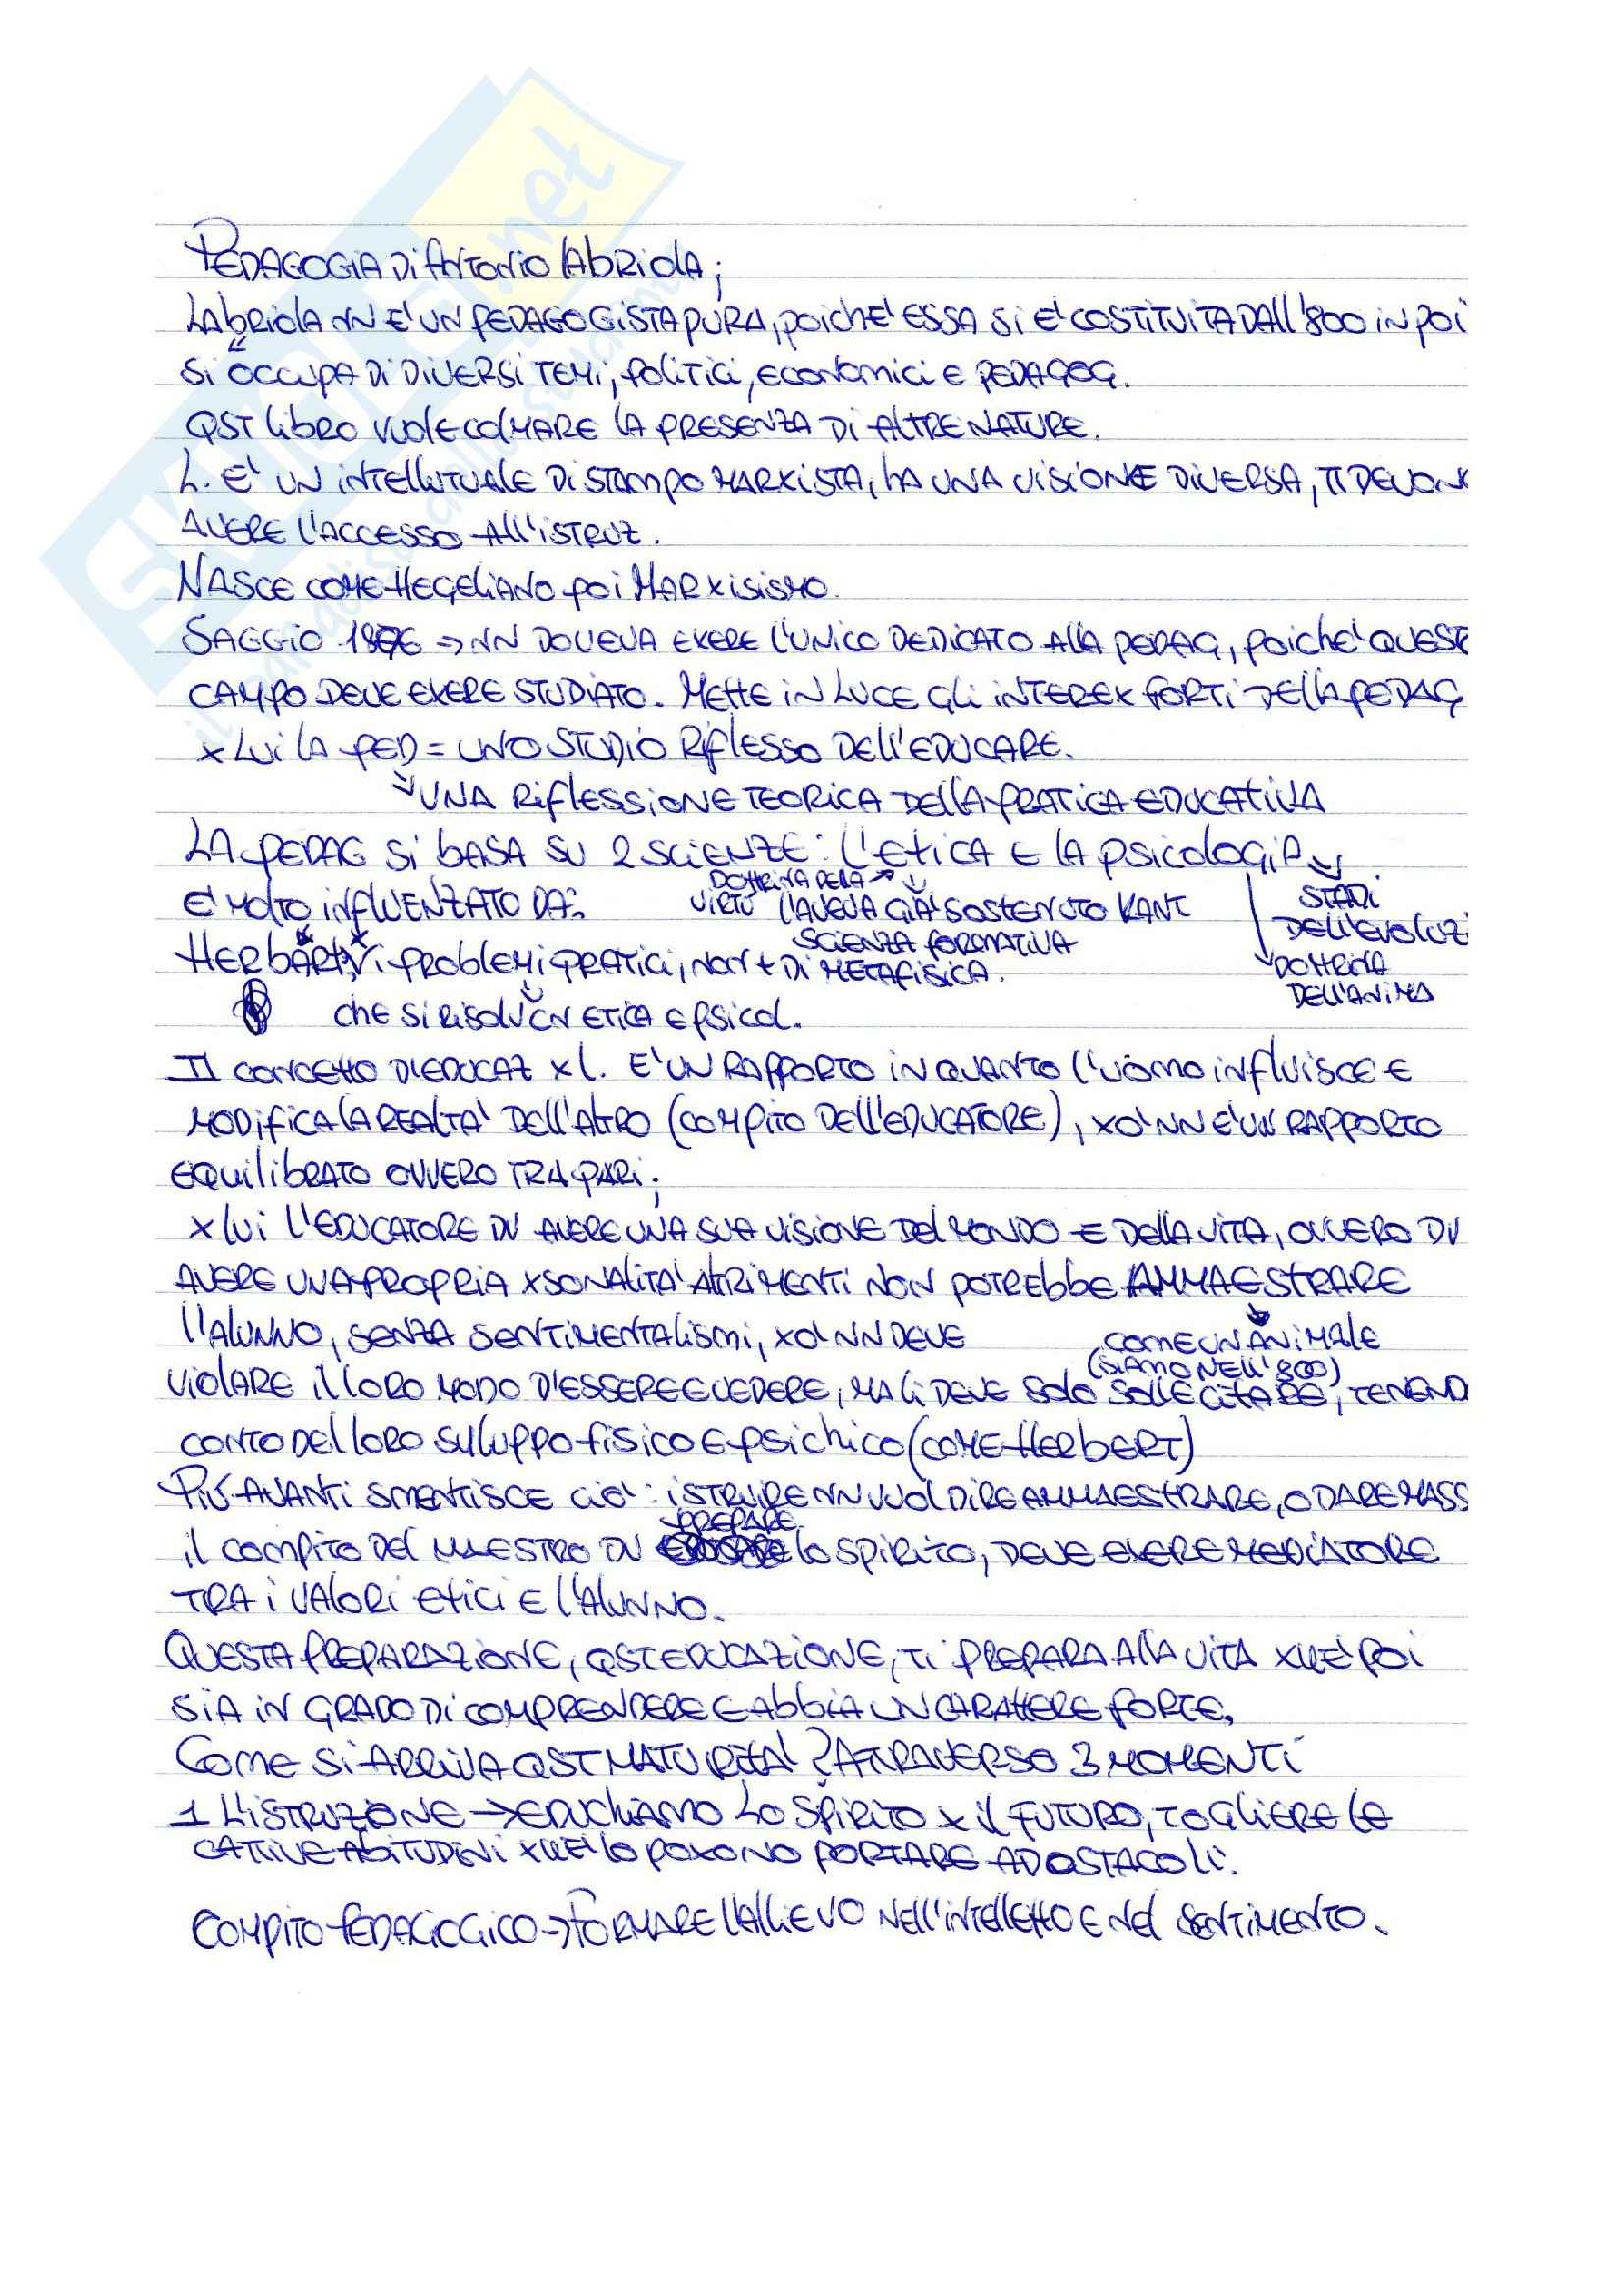 PEDAGOGIA DI ANTONIO LABRIOLA;
LABRIOLA NN E' UN PEDAGOGISTA PURA, POICHE' ESSA SI E' COSTITUITA DALL'800 IN POI
SI OCCUPA DI DIVERSI TEMI, POLITICI, ECONOMICI E PEDAGOG.
QST LIBRO VUOLE COLMARE LA PRESENZA DI ALTRE NATURE.
L. E' UN INTELLETTUALE DI STAMPO MARXISTA, HA UNA VISIONE DIVERSA, TI DEVON
AVERE L'ACCESSO ALL'ISTRUZ.
NASCE COME HEGELIANO POI MARXISISMO.
SAGGIO 1876 → NN DOVEVA EXERE L'UNICO DEDICATO ALLA PEDAG, POICHE' QUEST
CAMPO DEVE EXERE STUDIATO. METTE IN LUCE GLI INTEREX FORTI DELLA PEDAG
X LUI LA PED = UNO STUDIO RIFLESSO DELL'EDUCARE.
UNA RIFLESSIONE TEORICA DELLA PRATICA EDUCATIVA
LA PEDAG SI BASA SU 2 SCIENZE: L'ETICA E LA PSICOLOGIA
DOTTRINA DELA
VIRTÙ
E' MOLTO INFLUENZATO DA: L'AVEVA GIA' SOSTENUTO KANT
STADI
DELL'EVOLUZI
SCIENZA FORMATIVA
HERBART, X I PROBLEMI PRATICI, NON + DI METAFISICA.
DOTTRINA
DELL'ANIMA
CHE SI RISOLV IN ETICA E PSICOL.
IL CONCETTO DI EDUCAZ X L. E' UN RAPPORTO IN QUANTO L'UOMO INFLUISCE E
MODIFICA LA REALTA' DELL'ALTRO (COMPITO DELL'EDUCATORE), XO' NN E' UN RAPPORTO
EQUILIBRATO OVVERO TRA PARI;
X LUI L'EDUCATORE DV AVERE UNA SUA VISIONE DEL MONDO E DELLA VITA, OVVERO DV
AVERE UNA PROPRIA XSONALITA' ALTRIMENTI NON POTREBBE AMMAESTRARE
L'ALUNNO, SENZA SENTIMENTALISMI, XO' NN DEVE
COME UN ANIMALE
(SIAMO NELL'800)
VIOLARE IL LORO MODO D'ESSERE E VEDERE, MA LI DEVE SOLO SOLLECITARE, TENEND
CONTO DEL LORO SVILUPPO FISICO E PSICHICO (COME HERBERT)
PIÙ AVANTI SMENTISCE CIO': ISTRUIRE NN VUOL DIRE AMMAESTRARE, O DARE MASS
PREPARE
IL COMPITO DEL MAESTRO DV LO SPIRITO, DEVE EXERE MEDIATORE
TRA I VALORI ETICI E L'ALUNNO.
QUESTA PREPARAZIONE, QST EDUCAZIONE, TI PREPARA ALLA VITA XKE' POI
SIA IN GRADO DI COMPRENDERE E ABBIA UN CARATTERE FORTE,
COME SI ARRIVA A QST MATURITA'? ATTRAVERSO 3 MOMENTI
1 L'ISTRUZIONE → EDUCHIAMO LO SPIRITO X IL FUTURO, TOGLIERE LE
CATTIVE ABITUDINI XKE' LO POXONO PORTARE AD OSTACOLI.
COMPITO PEDAGIOGICO → FORMARE L'ALLIEVO NELL'INTELLETTO E NEL SENTIMENTO.